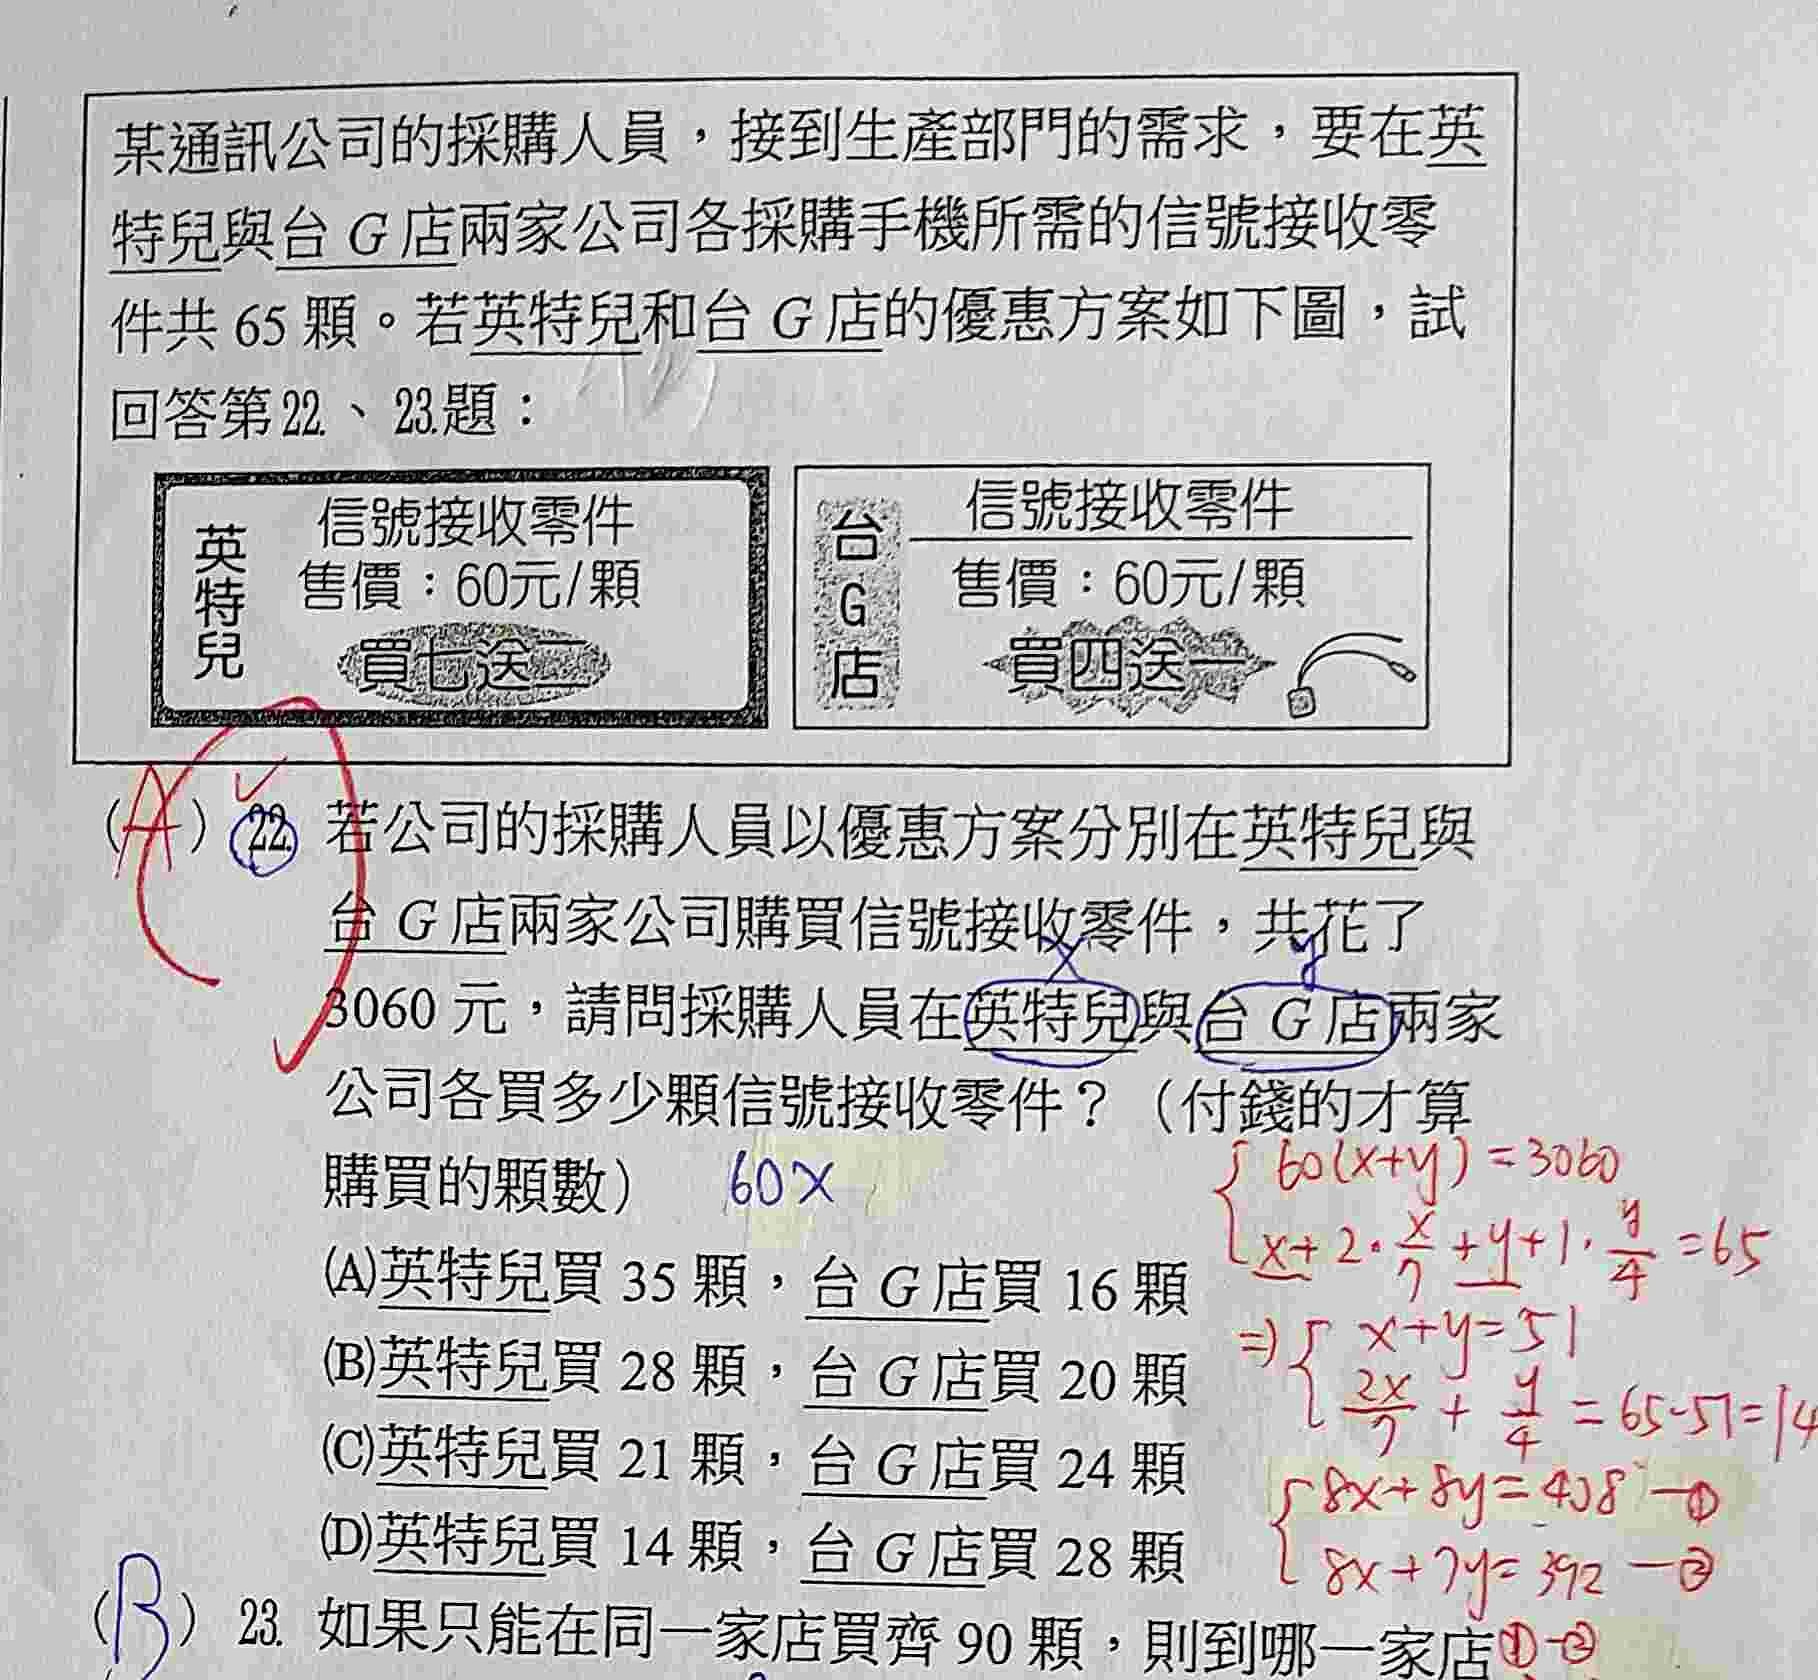 某通訊公司的採購人員，接到生產部門的需求，要在英
特兒與台 G 店兩家公司各採購手機所需的信號接收零
件共 65 顆。若英特兒和台 G 店的優惠方案如下圖，試
回答第22.、23.題：
英特兒
信號接收零件
售價：60元/顆
買七送二
台G店
信號接收零件
售價：60元/顆
買四送一
(A) 22. 若公司的採購人員以優惠方案分別在英特兒與
台 G 店兩家公司購買信號接收零件，共花了
x y
3060 元，請問採購人員在英特兒與台 G 店兩家
公司各買多少顆信號接收零件？（付錢的才算
購買的顆數） 60x
60(x+y)=3060
x+2·x/7+y+1·y/4=65
(A)英特兒買 35 顆，台 G 店買 16 顆
(B)英特兒買 28 顆，台 G 店買 20 顆
(C)英特兒買 21 顆，台 G 店買 24 顆
(D)英特兒買 14 顆，台 G 店買 28 顆
⇒ x+y=51
2x/7+y/4=65-51=14
8x+8y=408 —①
8x+7y=392 —②
(B) 23. 如果只能在同一家店買齊 90 顆，則到哪一家店
①-②